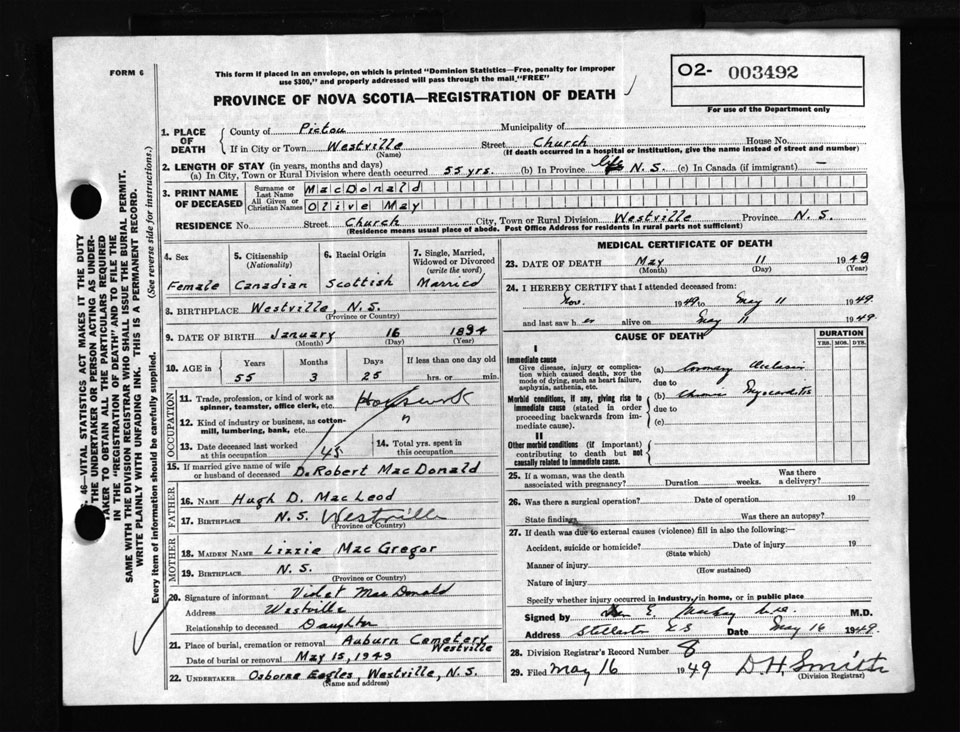 FORM 6
This form if placed in an envelope, on which is printed "Dominion Statistics—Free, penalty for improper
use $300," and properly addressed will pass through the mail, "FREE"
O2- 003492
For use of the Department only
PROVINCE OF NOVA SCOTIA—REGISTRATION OF DEATH
1. PLACE OF DEATH
County of Pictou Municipality of
If in City or Town Westville Street Church House No.
(Name) (If death occurred in a hospital or institution, give the name instead of street and number)
2. LENGTH OF STAY (in years, months and days)
(a) In City, Town or Rural Division where death occurred 55 yrs. (b) In Province life N.S. (c) In Canada (if immigrant) —
3. PRINT NAME OF DECEASED
Surname or Last Name MacDonald
All Given or Christian Names Olive May
RESIDENCE No. Street Church City, Town or Rural Division Westville Province N.S.
(Residence means usual place of abode. Post Office Address for residents in rural parts not sufficient)
4. Sex 5. Citizenship (Nationality) 6. Racial Origin 7. Single, Married, Widowed or Divorced (write the word)
Female Canadian Scottish Married
8. BIRTHPLACE Westville, N.S.
(Province or Country)
9. DATE OF BIRTH January 16 1894
(Month) (Day) (Year)
10. AGE in Years Months Days If less than one day old
55 3 25 hrs. or min.
OCCUPATION
11. Trade, profession, or kind of work as
spinner, teamster, office clerk, etc. Housework
12. Kind of industry or business, as cotton-
mill, lumbering, bank, etc. "
13. Date deceased last worked
at this occupation /45
14. Total yrs. spent in
this occupation
15. If married give name of wife
or husband of deceased D. Robert MacDonald
FATHER
16. NAME Hugh D. MacLeod
17. BIRTHPLACE N.S. Westville
(Province or Country)
MOTHER
18. MAIDEN NAME Lizzie MacGregor
19. BIRTHPLACE N.S.
(Province or Country)
20. Signature of informant Violet MacDonald
Address Westville
Relationship to deceased Daughter
21. Place of burial, cremation or removal Auburn Cemetery Westville
Date of burial or removal May 15, 1949
22. UNDERTAKER Osborne Eagles, Westville, N.S.
(Name and address)
MEDICAL CERTIFICATE OF DEATH
23. DATE OF DEATH May 11 1949
(Month) (Day) (Year)
24. I HEREBY CERTIFY that I attended deceased from:
Nov. 1949 to May 11 1949
and last saw her alive on May 11 1949.
CAUSE OF DEATH DURATION
YRS. MOS. DYS.
I
Immediate cause
Give disease, injury or complica-
tion which caused death, not the
mode of dying, such as heart failure,
asphyxia, asthenia, etc.
(a) Coronary Occlusion
due to
Morbid conditions, if any, giving rise to
immediate cause (stated in order
proceeding backwards from im-
mediate cause).
(b) Chronic Myocarditis
due to
(c)
II
Other morbid conditions (if important)
contributing to death but not
causally related to immediate cause.
25. If a woman, was the death Was there
associated with pregnancy? Duration weeks. a delivery?
26. Was there a surgical operation? Date of operation 19
State findings Was there an autopsy?
27. If death was due to external causes (violence) fill in also the following:—
Accident, suicide or homicide? Date of injury 19
(State which)
Manner of injury
(How sustained)
Nature of injury
Specify whether injury occurred in industry, in home, or in public place
Signed by E. M.D.
Address Stellarton N.S. Date May 16 1949.
28. Division Registrar's Record Number 8
29. Filed May 16 1949 D.H. Smith
(Division Registrar)
46—VITAL STATISTICS ACT MAKES IT THE DUTY
THE UNDERTAKER OR PERSON ACTING AS UNDER-
TAKER TO OBTAIN ALL THE PARTICULARS REQUIRED
IN THE "REGISTRATION OF DEATH" AND TO FILE THE
SAME WITH THE DIVISION REGISTRAR WHO SHALL ISSUE THE BURIAL PERMIT.
WRITE PLAINLY WITH UNFADING INK. THIS IS A PERMANENT RECORD.
Every item of information should be carefully supplied. (See reverse side for instructions.)